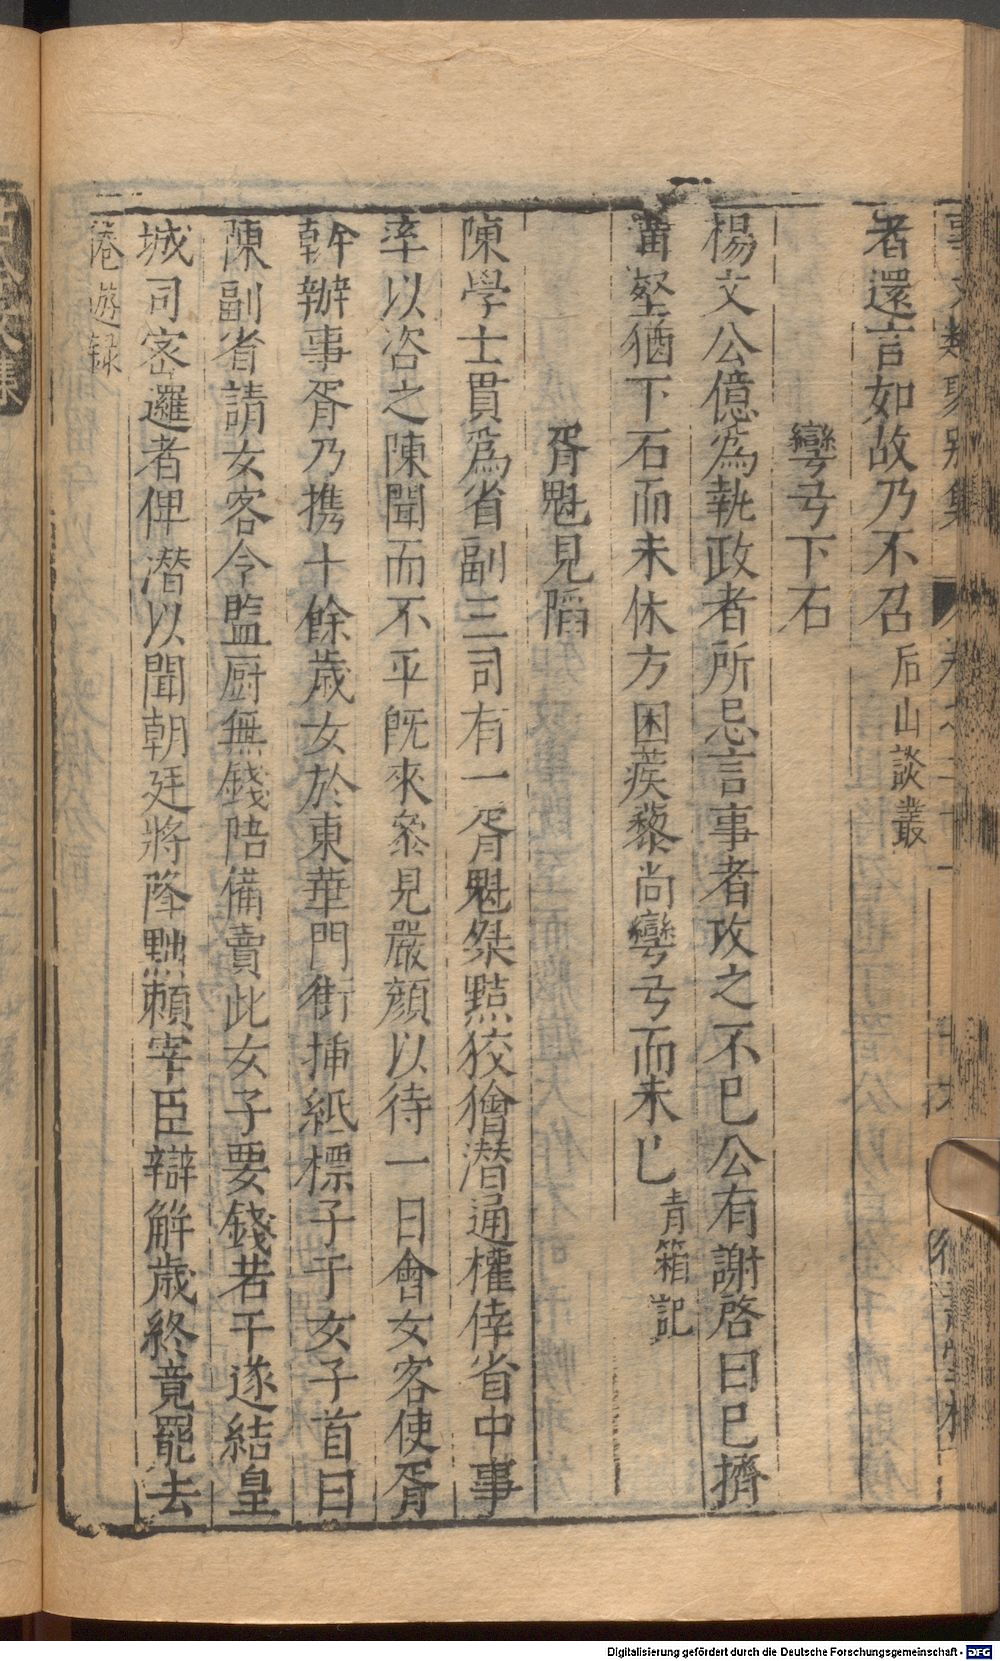 者還言如故乃不召后山談叢
彎弓下石
楊文公億為執政者所忌言事者攻之不已公有謝啓曰已擠
壑猶下石而未休方困蒺藜尚彎弓而未已青箱記
胥魁見陷
陳學士貫為省副三司有一胥魁桀黠狡獪潛通權倖省中事
率以咨之陳聞而不平既來叅見嚴顔以待一日會女客使胥
幹辦事胥乃携十餘歲女於東華門街揷紙標子于女子首曰
陳副省請女客令監厨無錢陪備賣此女子要錢若干遂結皇
城司宻邏者俾潛以聞朝廷將隆黜賴宰臣辯解歲終竟罷去
遊録
Digitalisierung gefördert durch die Deutsche Forschungsgemeinschaft - DFG